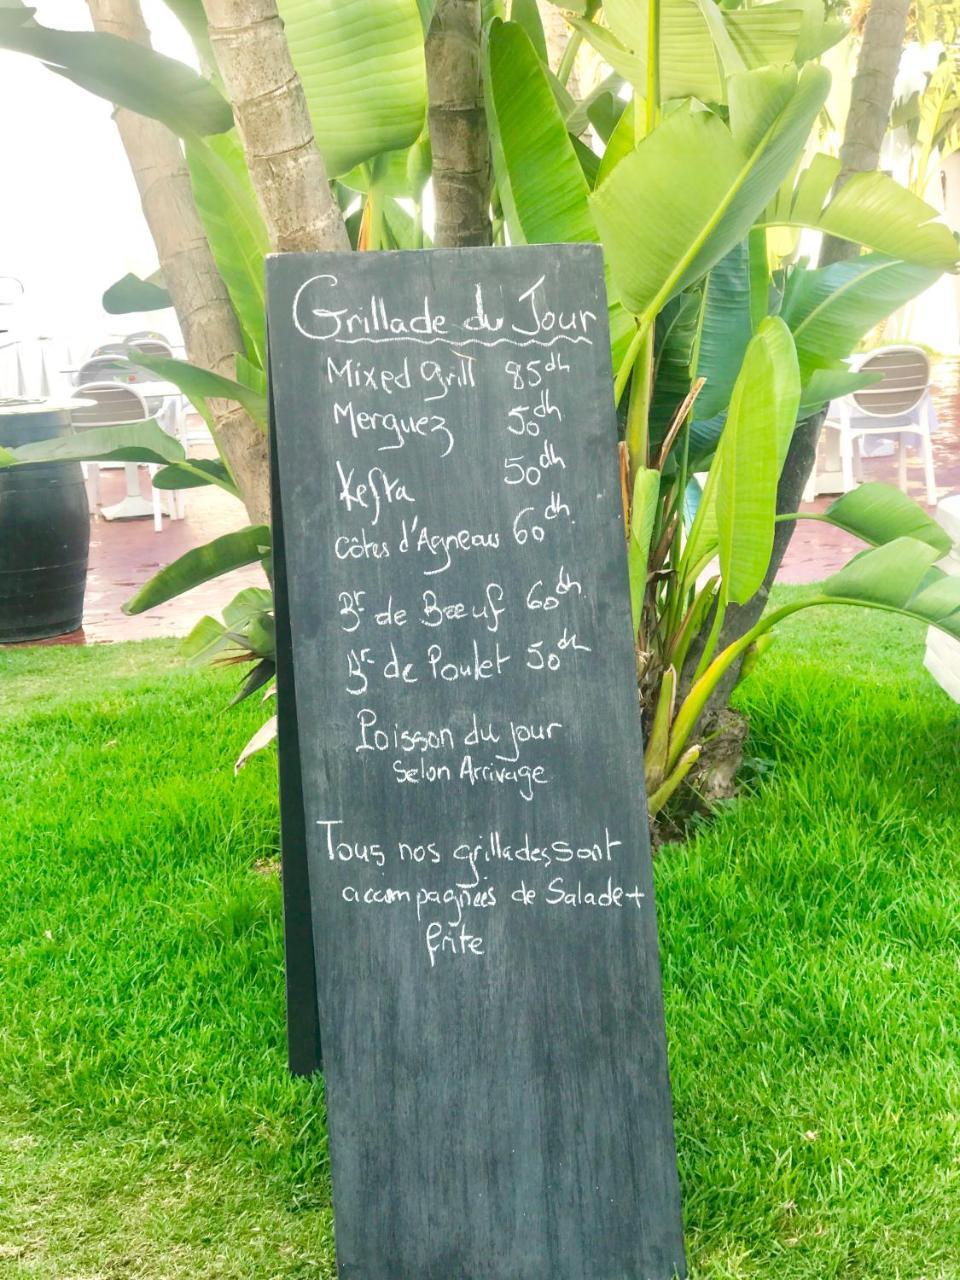 Grillade du Jour
Mixed Grill 85dh
Merguez 50dh
Kefta 50dh
côtes d'Agneau 60dh
Br de Boeuf 60dh
Br de Poulet 50dh
Poisson du jour
Selon Arrivage
Tous nos grillades sont
accompagnées de Salade +
frite